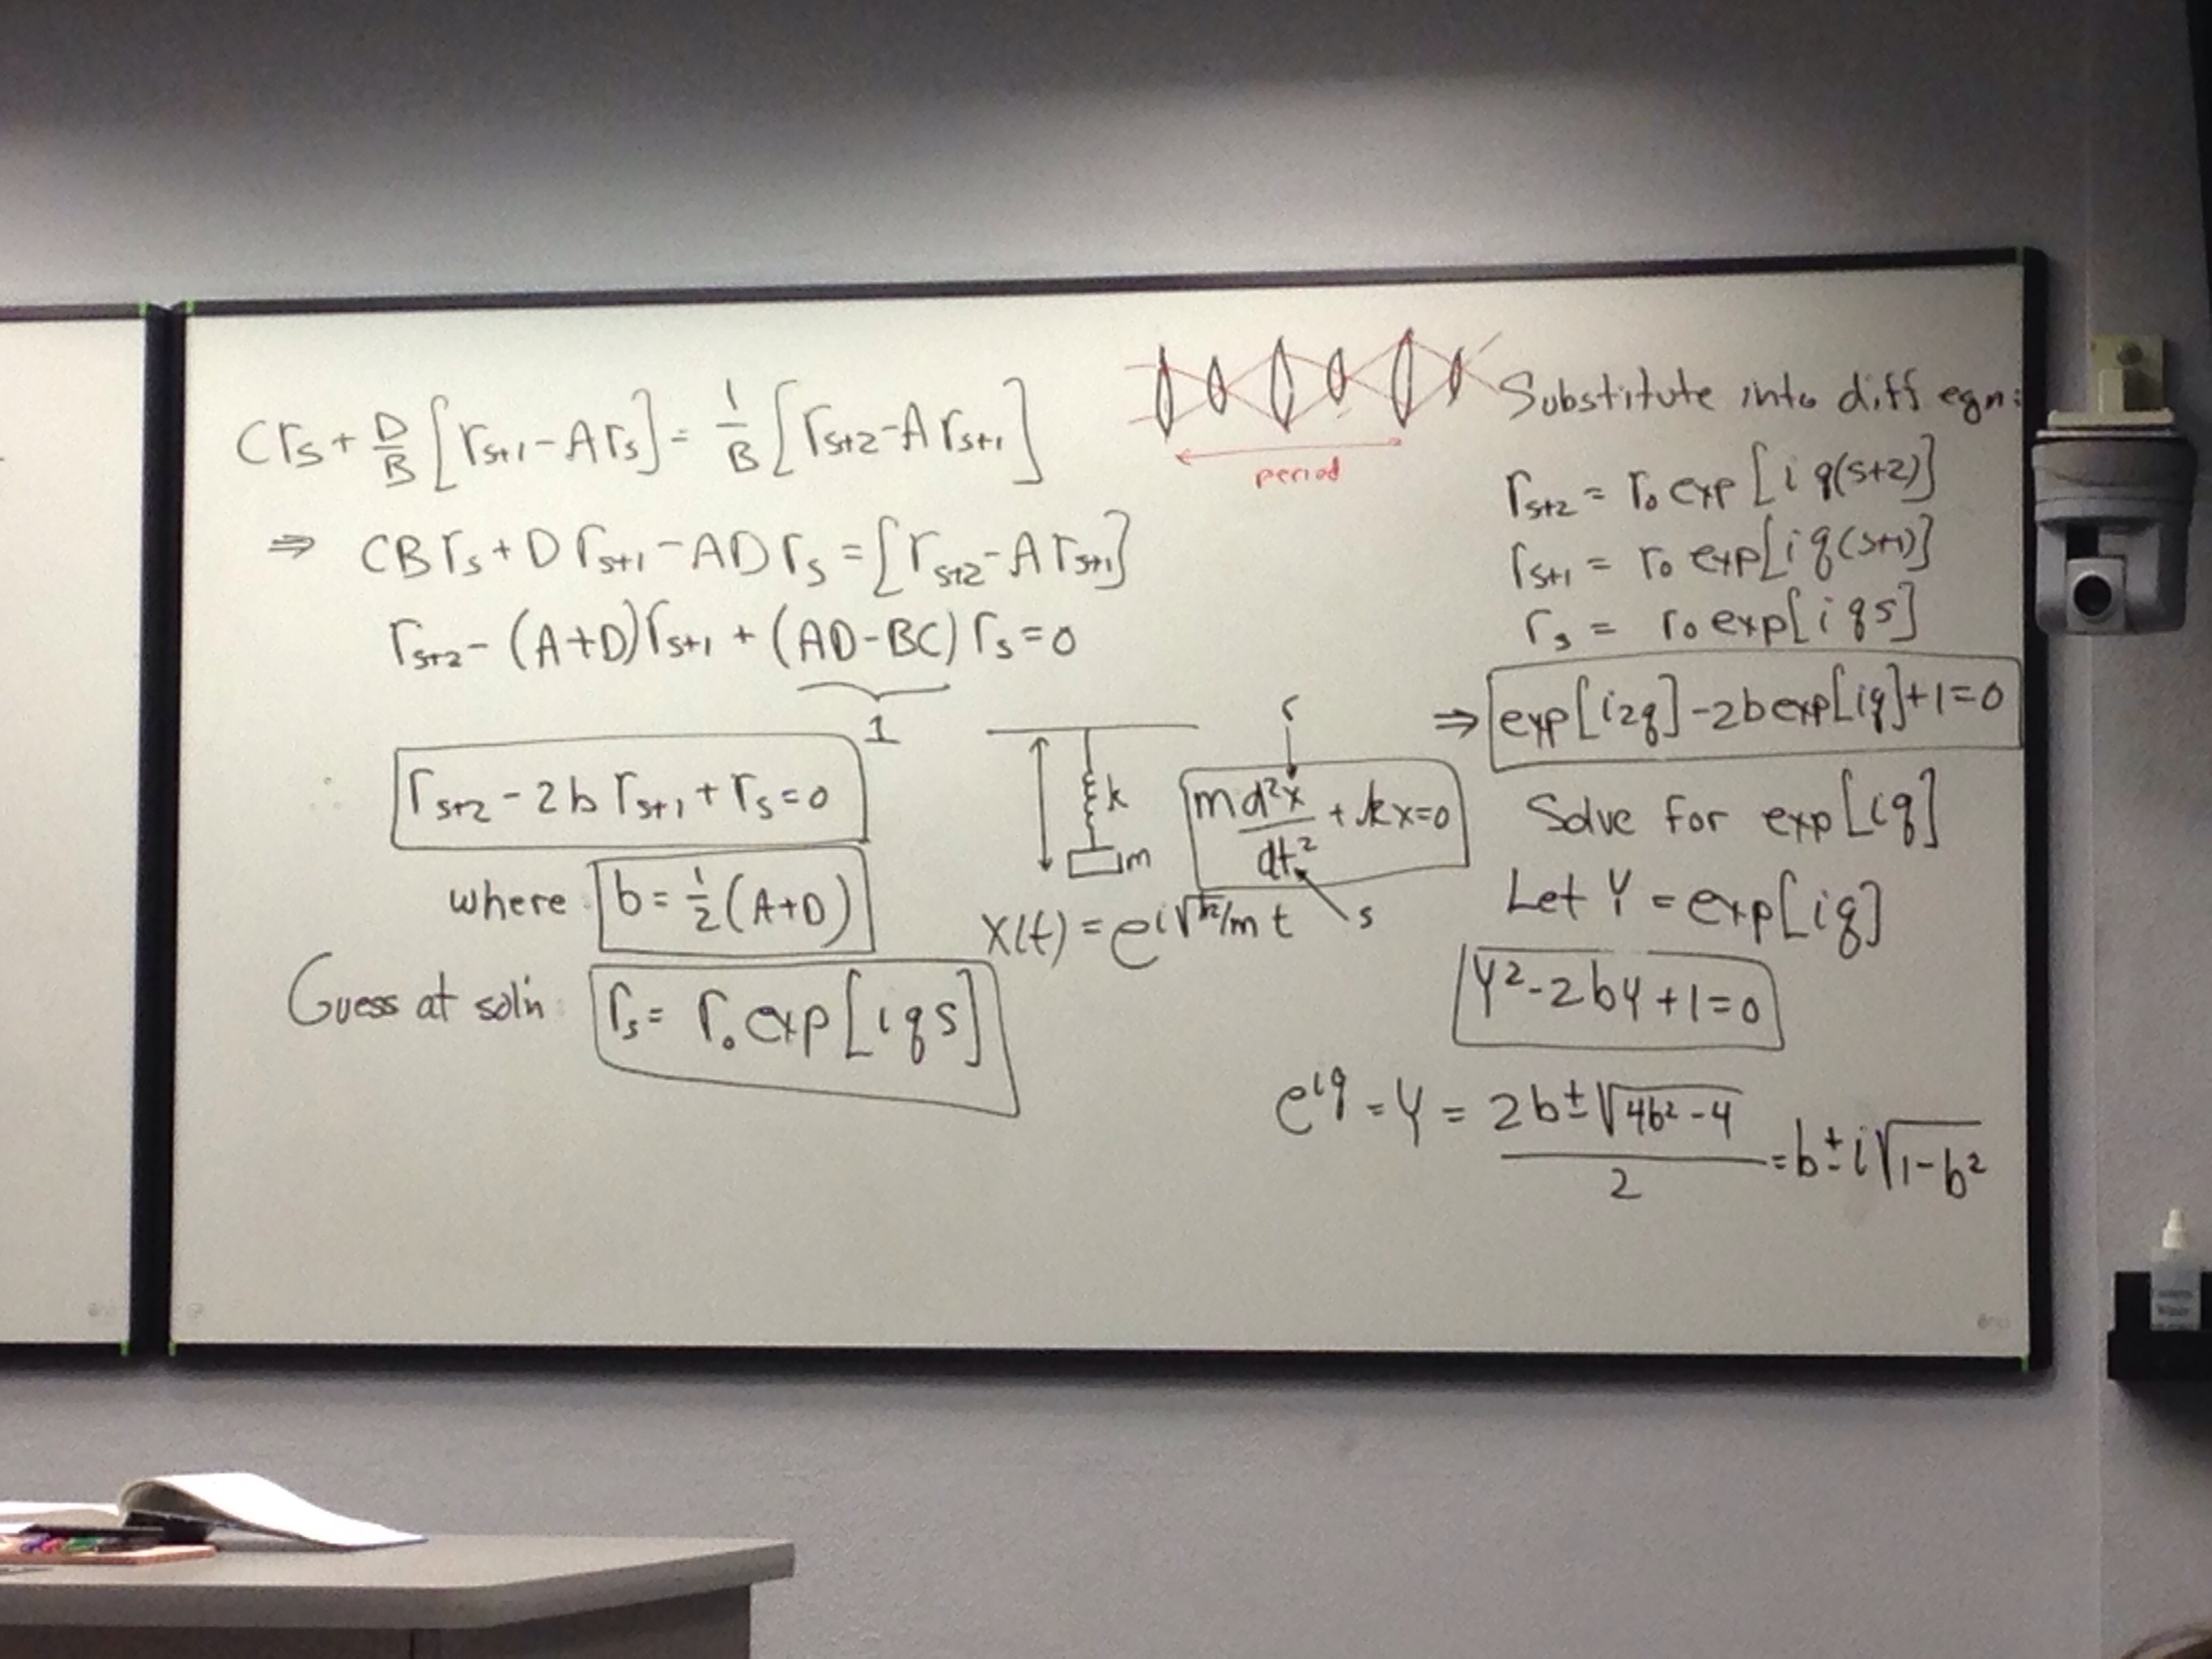 Crₛ + D/B [rₛ₊₁ - Arₛ] = 1/B [rₛ₊₂ - Arₛ₊₁]
⇒ CBrₛ + Drₛ₊₁ - ADrₛ = [rₛ₊₂ - Arₛ₊₁]
rₛ₊₂ - (A+D)rₛ₊₁ + (AD-BC)rₛ = 0
1
rₛ₊₂ - 2b rₛ₊₁ + rₛ = 0
where b = ½(A+D)
Guess at sol'n: rₛ = r₀ exp[iqs]
period
k
m
r
m d²x/dt² + kx = 0
s
x(t) = e^{i√k/m t}
Substitute into diff eqn:
rₛ₊₂ = r₀ exp[iq(s+2)]
rₛ₊₁ = r₀ exp[iq(s+1)]
rₛ = r₀ exp[iqs]
⇒ exp[i2q] - 2b exp[iq] + 1 = 0
Solve for exp[iq]
Let Y = exp[iq]
Y² - 2bY + 1 = 0
e^{iq} = Y = (2b ± √(4b² - 4))/2 = b ± i√(1-b²)